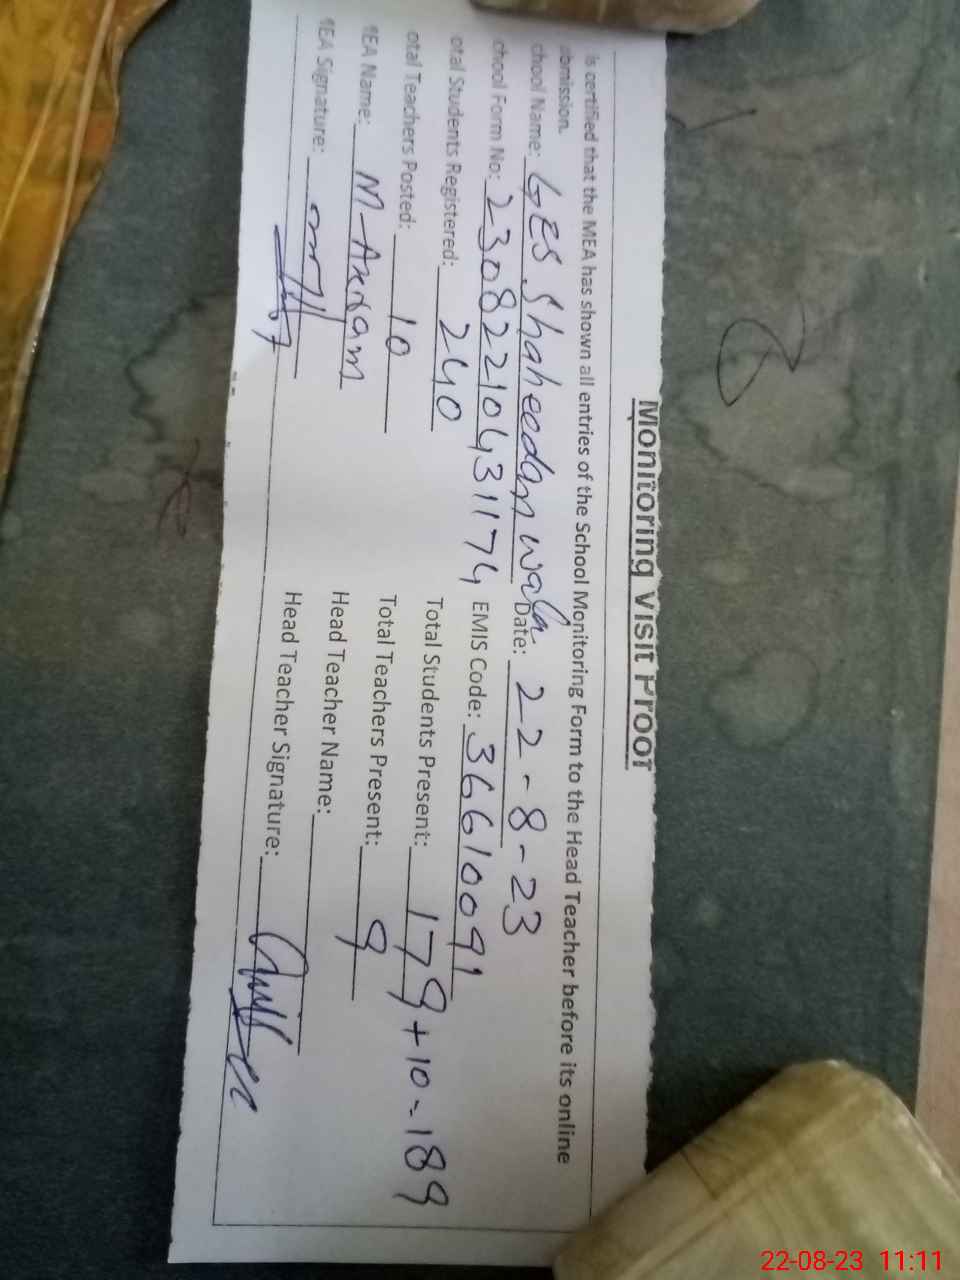 Monitoring Visit Proof
is certified that the MEA has shown all entries of the School Monitoring Form to the Head Teacher before its online
bmission.
chool Name: GES Shaheedan wala Date: 22-8-23
chool Form No: 23082210431174 EMIS Code: 36610091
otal Students Registered: 240 Total Students Present: 179+10-189
otal Teachers Posted: 10 Total Teachers Present: 9
MEA Name: M-Akram Head Teacher Name:
MEA Signature: Head Teacher Signature:
22-08-23 11:11